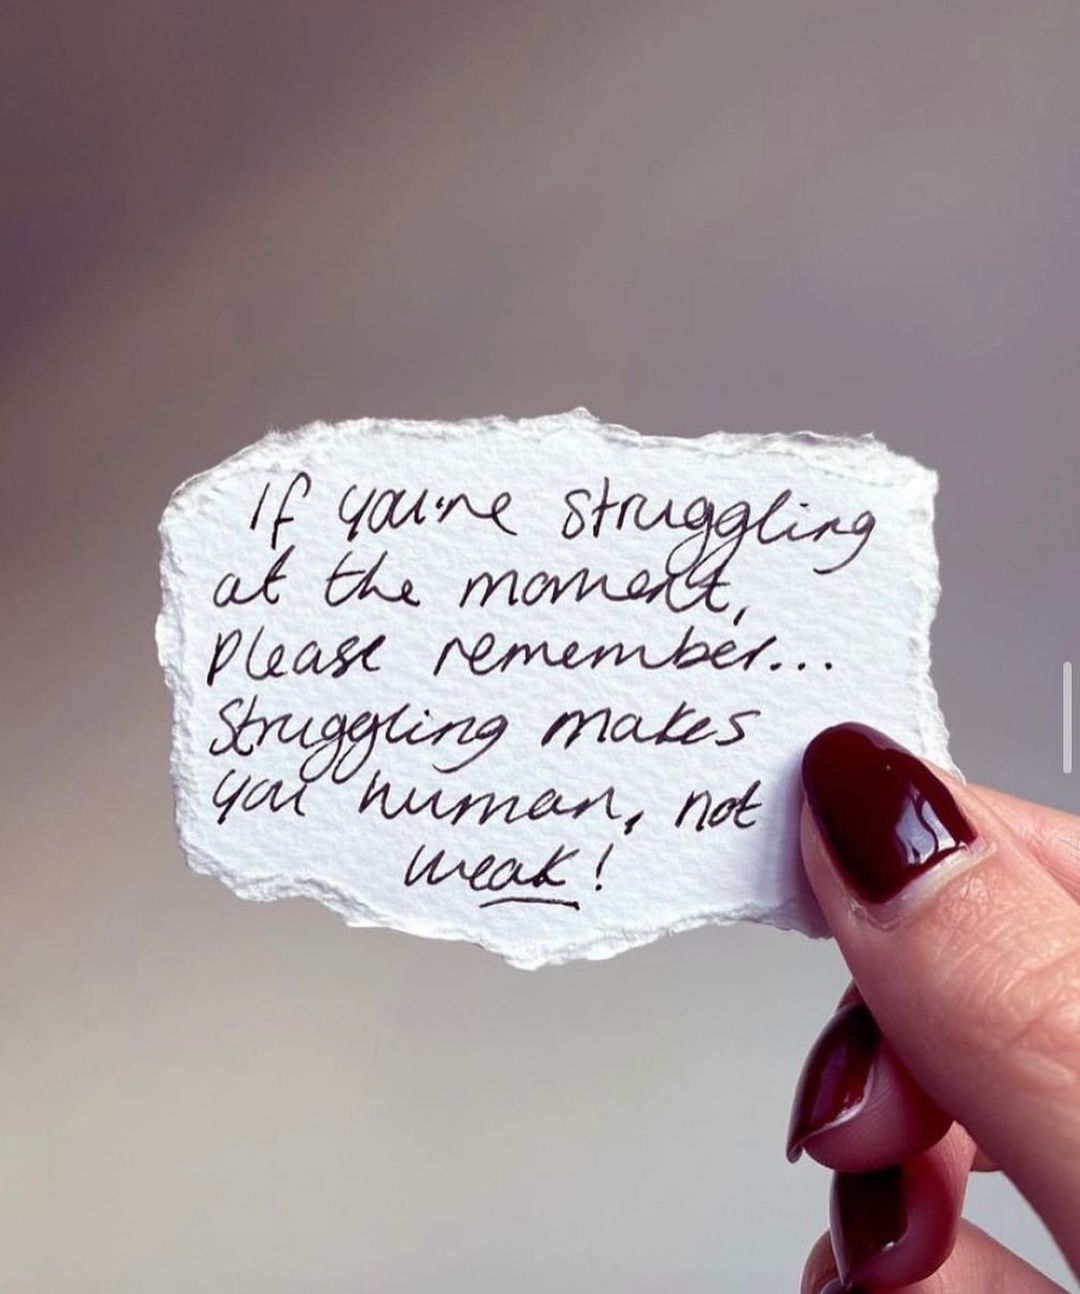 If you're struggling
at the moment,
please remember...
Struggling makes
you human, not
weak!